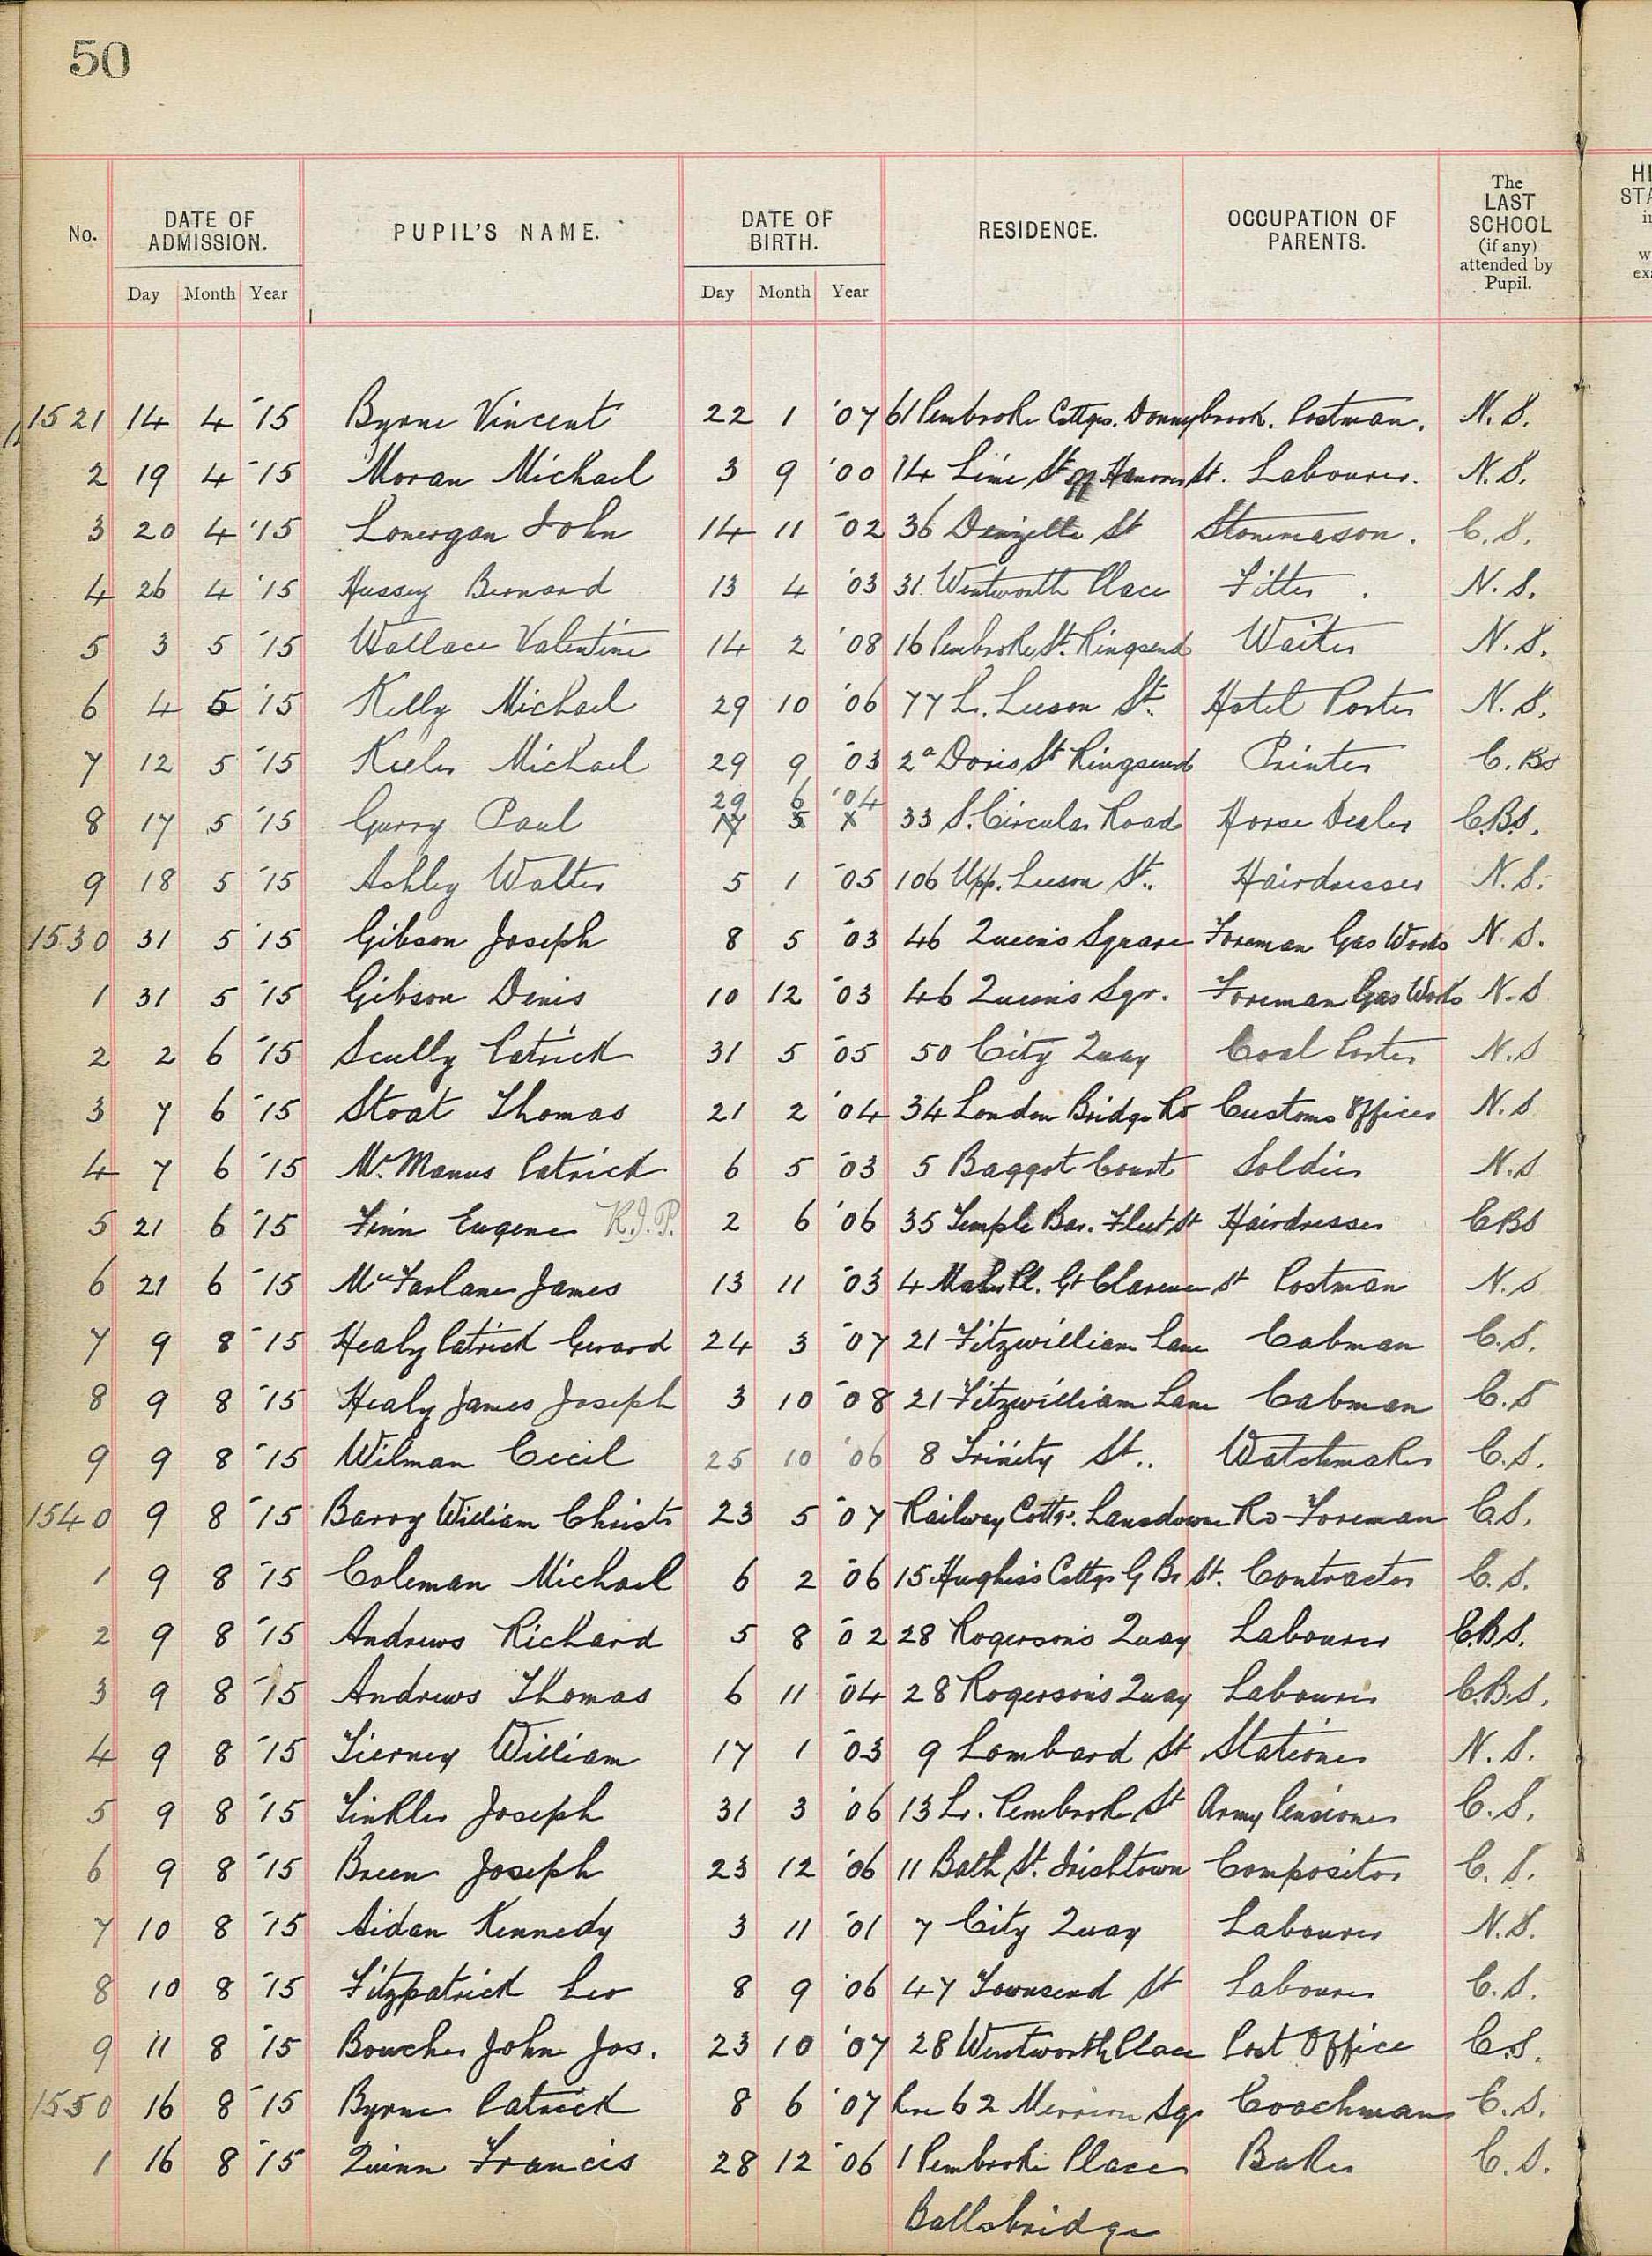 50
No. DATE OF ADMISSION. PUPIL'S NAME. DATE OF BIRTH. RESIDENCE. OCCUPATION OF PARENTS. The LAST SCHOOL (if any) attended by Pupil.
Day Month Year Day Month Year
1521 14 4 '15 Byrne Vincent 22 1 '07 61 Pembroke Cottgs. Donnybrook. Postman. N.S.
2 19 4 '15 Moran Michael 3 9 '00 14 Lime St off Hanover St. Labourer. N.S.
3 20 4 '15 Lonergan John 14 11 '02 36 Denzille St Stonemason. C.S.
4 26 4 '15 Hussey Bernard 13 4 '03 31 Wentworth Place Fitter. N.S.
5 3 5 '15 Wallace Valentine 14 2 '08 16 Pembroke St. Ringsend Waiter N.S.
6 4 5 '15 Kelly Michael 29 10 '06 77 L. Leeson St. Hotel Porter N.S.
7 12 5 '15 Keeler Michael 29 9 '03 2a Doris St Ringsend Printer C.Bs
29 6 '04
8 17 5 '15 Gurry Paul 17 5 33 S. Circular Road Horse Dealer C.B.S.
9 18 5 '15 Ashley Walter 5 1 '05 106 Upp. Leeson St. Hairdresser N.S.
1530 31 5 '15 Gibson Joseph 8 5 '03 46 Queen's Square Foreman Gas Works N.S.
1 31 5 '15 Gibson Denis 10 12 '03 46 Queen's Sqr. Foreman Gas Works N.S
2 2 6 '15 Scully Patrick 31 5 '05 50 City Quay Coal Porter N.S
3 7 6 '15 Stoat Thomas 21 2 '04 34 London Bridge Rd Customs Officer N.S
4 7 6 '15 McManus Patrick 6 5 '03 5 Baggot Court Soldier N.S
5 21 6 '15 Finn Eugene R.I.P. 2 6 '06 35 Temple Bar. Fleet St Hairdresser CBS
6 21 6 '15 McFarlane James 13 11 '03 4 Pl. Gt Clarence St Postman N.S
7 9 8 '15 Healy Patrick Gerard 24 3 '07 21 Fitzwilliam Lane Cabman C.S.
8 9 8 '15 Healy James Joseph 3 10 '08 21 Fitzwilliam Lane Cabman C.S
9 9 8 '15 Wilman Cecil 25 10 '06 8 Trinity St.. Watchmaker C.S.
1540 9 8 '15 Barry William Christr 23 5 '07 Railway Cottgs. Lansdowne Rd Foreman C.S.
1 9 8 '15 Coleman Michael 6 2 '06 15 Hughes's Cottgs G Br St. Contractor C.S.
2 9 8 '15 Andrews Richard 5 8 '02 28 Rogerson's Quay Labourer C.B.S.
3 9 8 '15 Andrews Thomas 6 11 '04 28 Rogerson's Quay Labourer C.B.S.
4 9 8 '15 Tierney William 17 1 '03 9 Lombard St Stationer N.S.
5 9 8 '15 Tinkler Joseph 31 3 '06 13 Lr. Pembroke St Army Pensioner C.S.
6 9 8 '15 Breen Joseph 23 12 '06 11 Bath St. Irishtown Compositor C.S.
7 10 8 '15 Aidan Kennedy 3 11 '01 7 City Quay Labourer N.S.
8 10 8 '15 Fitzpatrick Leo 8 9 '06 47 Townsend St Labourer C.S.
9 11 8 '15 Boucher John Jos. 23 10 '07 28 Wentworth Place Post Office C.S.
1550 16 8 '15 Byrne Patrick 8 6 '07 62 Merrion Sqr Coachman C.S.
1 16 8 '15 Quinn Francis 28 12 '06 1 Pembroke Place Baker C.S.
Ballsbridge